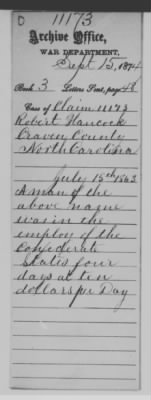 D 11173
Archive Office,
WAR DEPARTMENT,
Sept 15, 1874
Book 3 Letters Sent, page 48
Case of Claim 11173
Robert Hancock
Craven County
North Carolina
July 15th 1863
A man of the
above name
was in the
employ of the
Confederate
States four
days at ten
dollars per Day